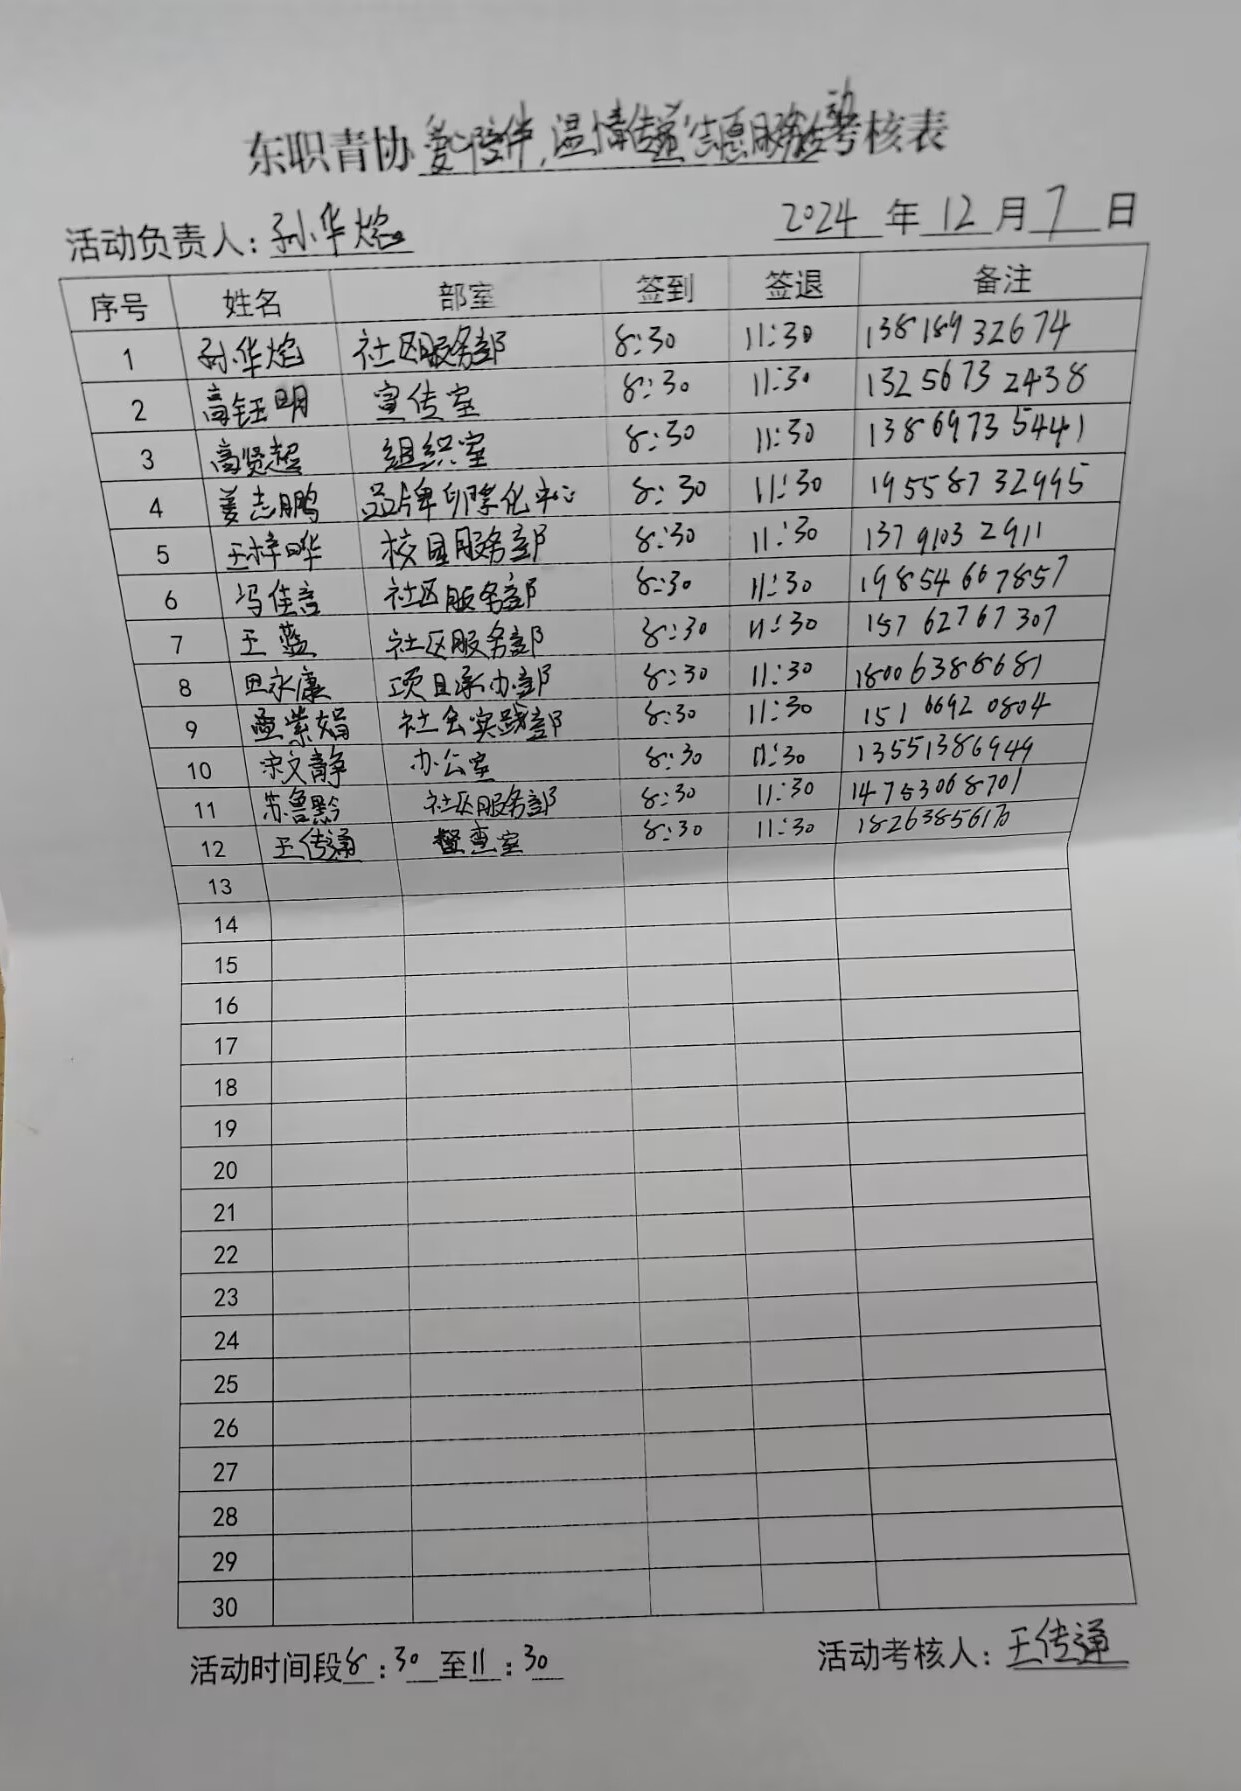 东职青协爱心陪伴,温情传递"志愿服务活动考核表
活动负责人:孙华焰 2024年12月7日
序号 姓名 部室 签到 签退 备注
1 孙华焰 社区服务部 8:30 11:30 13818932674
2 高钰明 宣传室 8:30 11:30 13256732438
3 高贤超 组织室 8:30 11:30 13869735441
4 姜志鹏 品牌孵化中心 8:30 11:30 19558732995
5 王梓晔 校园服务部 8:30 11:30 13791032911
6 冯佳言 社区服务部 8:30 11:30 19854667857
7 王蓝 社区服务部 8:30 11:30 15762767307
8 田永康 项目承办部 8:30 11:30 18006388681
9 紫娟 社会实践部 8:30 11:30 15166920804
10 宋文静 办公室 8:30 11:30 13551386949
11 苏鲁黔 社区服务部 8:30 11:30 14753068701
12 王传通 督查室 8:30 11:30 182638561
13
14
15
16
17
18
19
20
21
22
23
24
25
26
27
28
29
30
活动时间段8:30至11:30 活动考核人:王传通